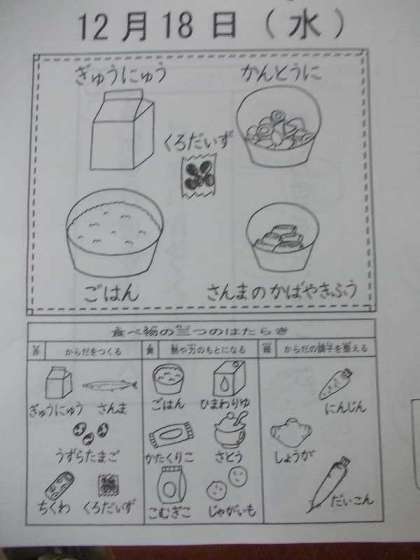 12月18日(水)
ぎゅうにゅう
かんとうに
くろだいず
ごはん
さんまのかばやきふう
食べ物の三つのはたらき
からだをつくる
熱や力のもとになる
からだの調子を整える
ぎゅうにゅう さんま
うずらたまご
ちくわ くろだいず
ごはん ひまわりゆ
かたくりこ さとう
こむぎこ じゃがいも
にんじん
しょうが
だいこん